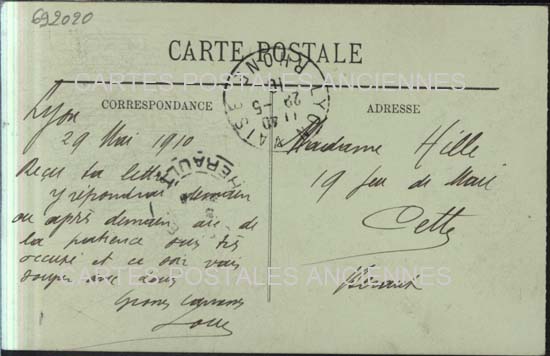 692020
CARTE POSTALE
CARTES POSTALES ANCIENNES
CORRESPONDANCE
ADRESSE
LYON
RHONE
HERAULT
Lyon
29 Mai 1910
Reçu ta lettre
y répondrai demain
ou après demain de
la patience suis très
occupé et ce soir vais
souper
Madame Hille
19 de Mai
Cette
Hérault
CARTES POSTALES ANCIENNES